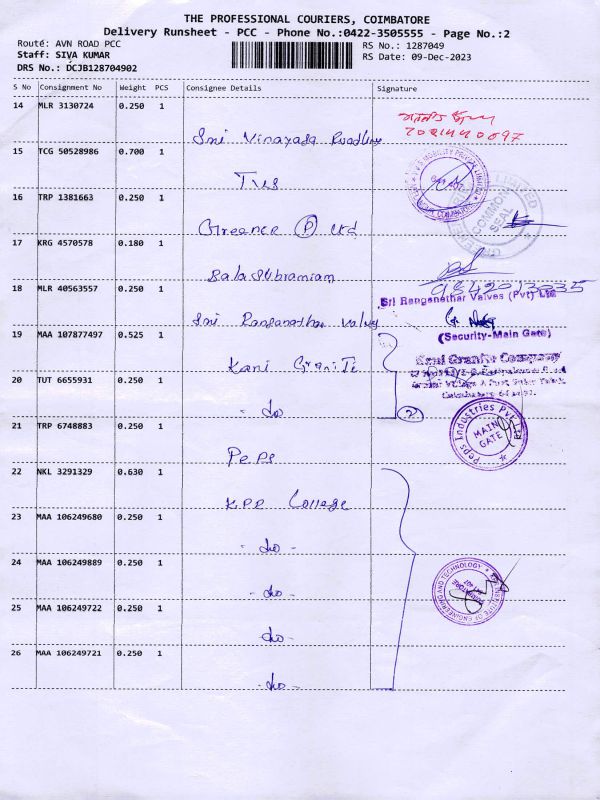 THE PROFESSIONAL COURIERS, COIMBATORE
Delivery Runsheet - PCC - Phone No.:0422-3505555 - Page No.:2
Route: AVN ROAD PCC
RS No.: 1287049
Staff: SIVA KUMAR
RS Date: 09-Dec-2023
DRS No.: DCJB128704902
S No Consignment No Weight PCS Consignee Details Signature
14 MLR 3130724 0.250 1
Sri Vinayaga Roadlines
15 TCG 50528986 0.700 1
TVS
16 TRP 1381663 0.250 1
Greence (P) Ltd
COMMON SEAL
17 KRG 4570578 0.180 1
Balasubramiam
9842013035
18 MLR 40563557 0.250 1
Sri Ranganathar Valves
Sri Ranganathar Valves (Pvt) Ltd
(Security-Main Gate)
19 MAA 107877497 0.525 1
Kani Granite
Kani Granite Company
20 TUT 6655931 0.250 1
- do
2
21 TRP 6748883 0.250 1
Peps
Peps Industries Pvt Ltd
MAIN GATE
22 NKL 3291329 0.630 1
KPR College
23 MAA 106249680 0.250 1
- do -
24 MAA 106249889 0.250 1
- do -
INSTITUTE OF ENGINEERING AND TECHNOLOGY
25 MAA 106249722 0.250 1
do -
26 MAA 106249721 0.250 1
- do -